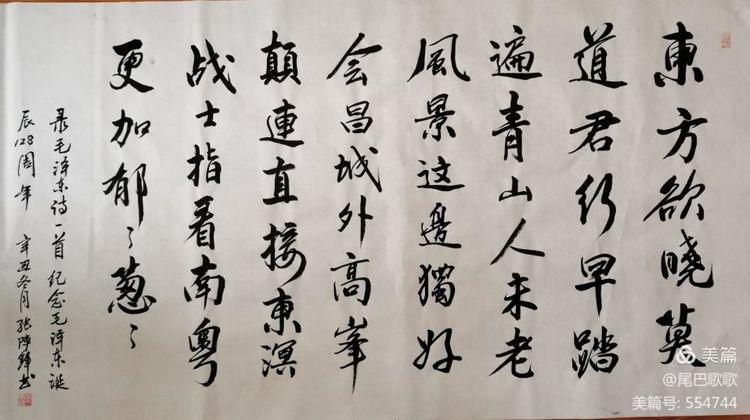 東方欲曉莫
道君行早踏
遍青山人未老
風景这邊獨好
会昌城外高峯
顛連直接東溟
战士指看南粵
更加郁〻葱〻
录毛泽东诗一首 纪念毛泽东诞
辰128周年 辛丑冬月 张书
美篇
@尾巴歌歌
美篇号: 554744